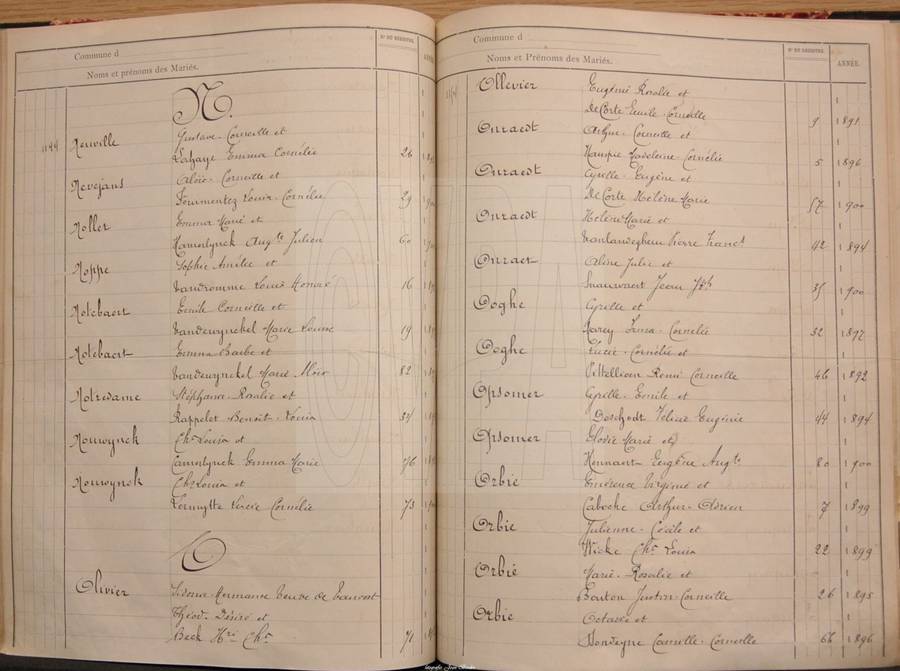 Commune d
N° DU REGISTRE.
ANNÉE
Noms et prénoms des Mariés.
N.
Neuville Gustave - Corneille et
Lahaye Emma Cornélie 26
Nevejans Aloïs - Corneille et
Dourmentez Louise - Cornélie 29
Noller Emma Marie et
Hamerlynck Augte Julien 60
Noppe Sophie Amélie et
Vandromme Louis Honoré 16
Notebaert Emile Corneille et
Vandewynckel Marie Louise 19
Notebaert Emma Barbe et
Vandewynckel Marie 82
Notredame Stéphanie - Rosalie et
Rappelet Benoit - Louis
Nouwynck Chs Louis et
Camerlynck Emma Marie 76
Nouwynck Chs Louis et
Lermytte Lucie Cornélie 73
O
Olivier Sidonie Hermanie Veuve de
Théod. Désiré et
Beck Hri Chs 71
Commune d
N° DU REGISTRE.
ANNÉE.
Noms et Prénoms des Mariés.
Ollevier Eugénie Rosalie et
DeCorte Emile - Corneille 9 1891
Onraedt Arthur - Corneille et
Hauspie Madeleine - Cornélie 5 1896
Onraedt Cyrille - Eugène et
DeCorte Hélène Marie 57 1900
Onraedt Hélène Marie et
Vanlandeghem Pierre Francs 42 1894
Onraet Aline Julie et
Snauwaert Jean Jph 35 1900
Ooghe Cyrille et
Harey Irma - Cornélie 32 1897
Ooghe Lucie - Cornélie et
Pittellion Remi Corneille 46 1892
Opsomer Cyrille - Emile et
Deschodt Félicie Eugénie 44 1894
Opsomer Elodie Marie et
Hennart Eugène Augte 80 1900
Orbie Emérence Virginie et
Caboche Arthur - Adrien 7 1899
Orbie Julienne - Cécile et
Wicke Chs Louis 22 1899
Orbie Marie - Rosalie et
Bouton Justin - Corneille 26 1895
Orbie Octavie et
Camille - Corneille 66 1896